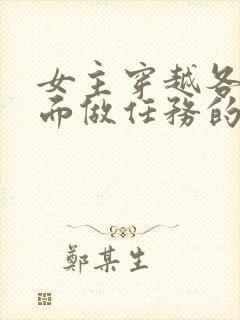 女主穿越各
而做任務的
鄭某生